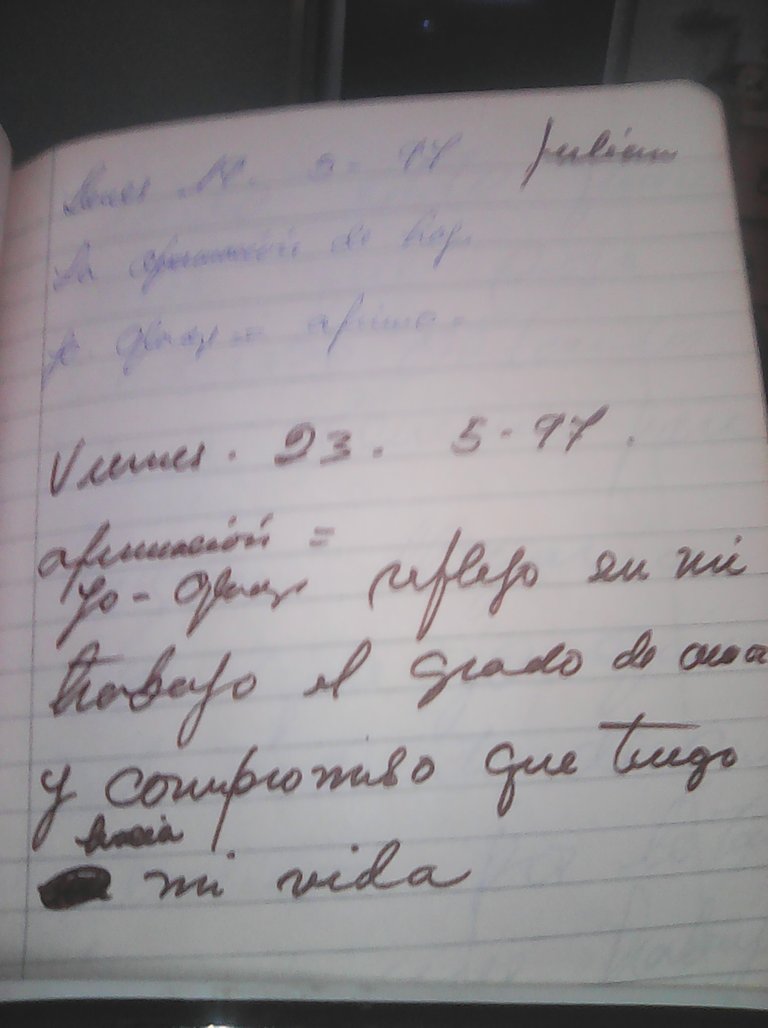 5-97 Julian
La afirmación de hoy.
Yo afirmo.
Viernes. 23. 5-97.
afirmación =
Yo - reflejo en mi
trabajo el grado de
y compromiso que tengo
hacia
mi vida